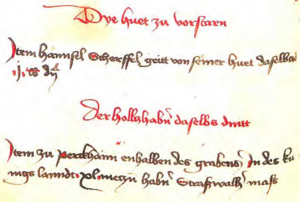 Dye huet zu vorstarn
Item hannsel Scherffel geitt von seiner huet daselbs
ij. tt dẏ
Der holltzhabn daselbs dint
Item zu perckhaim enhalben des grabens In des ku
nigs lanndt xl meczn habn Straswalh mass